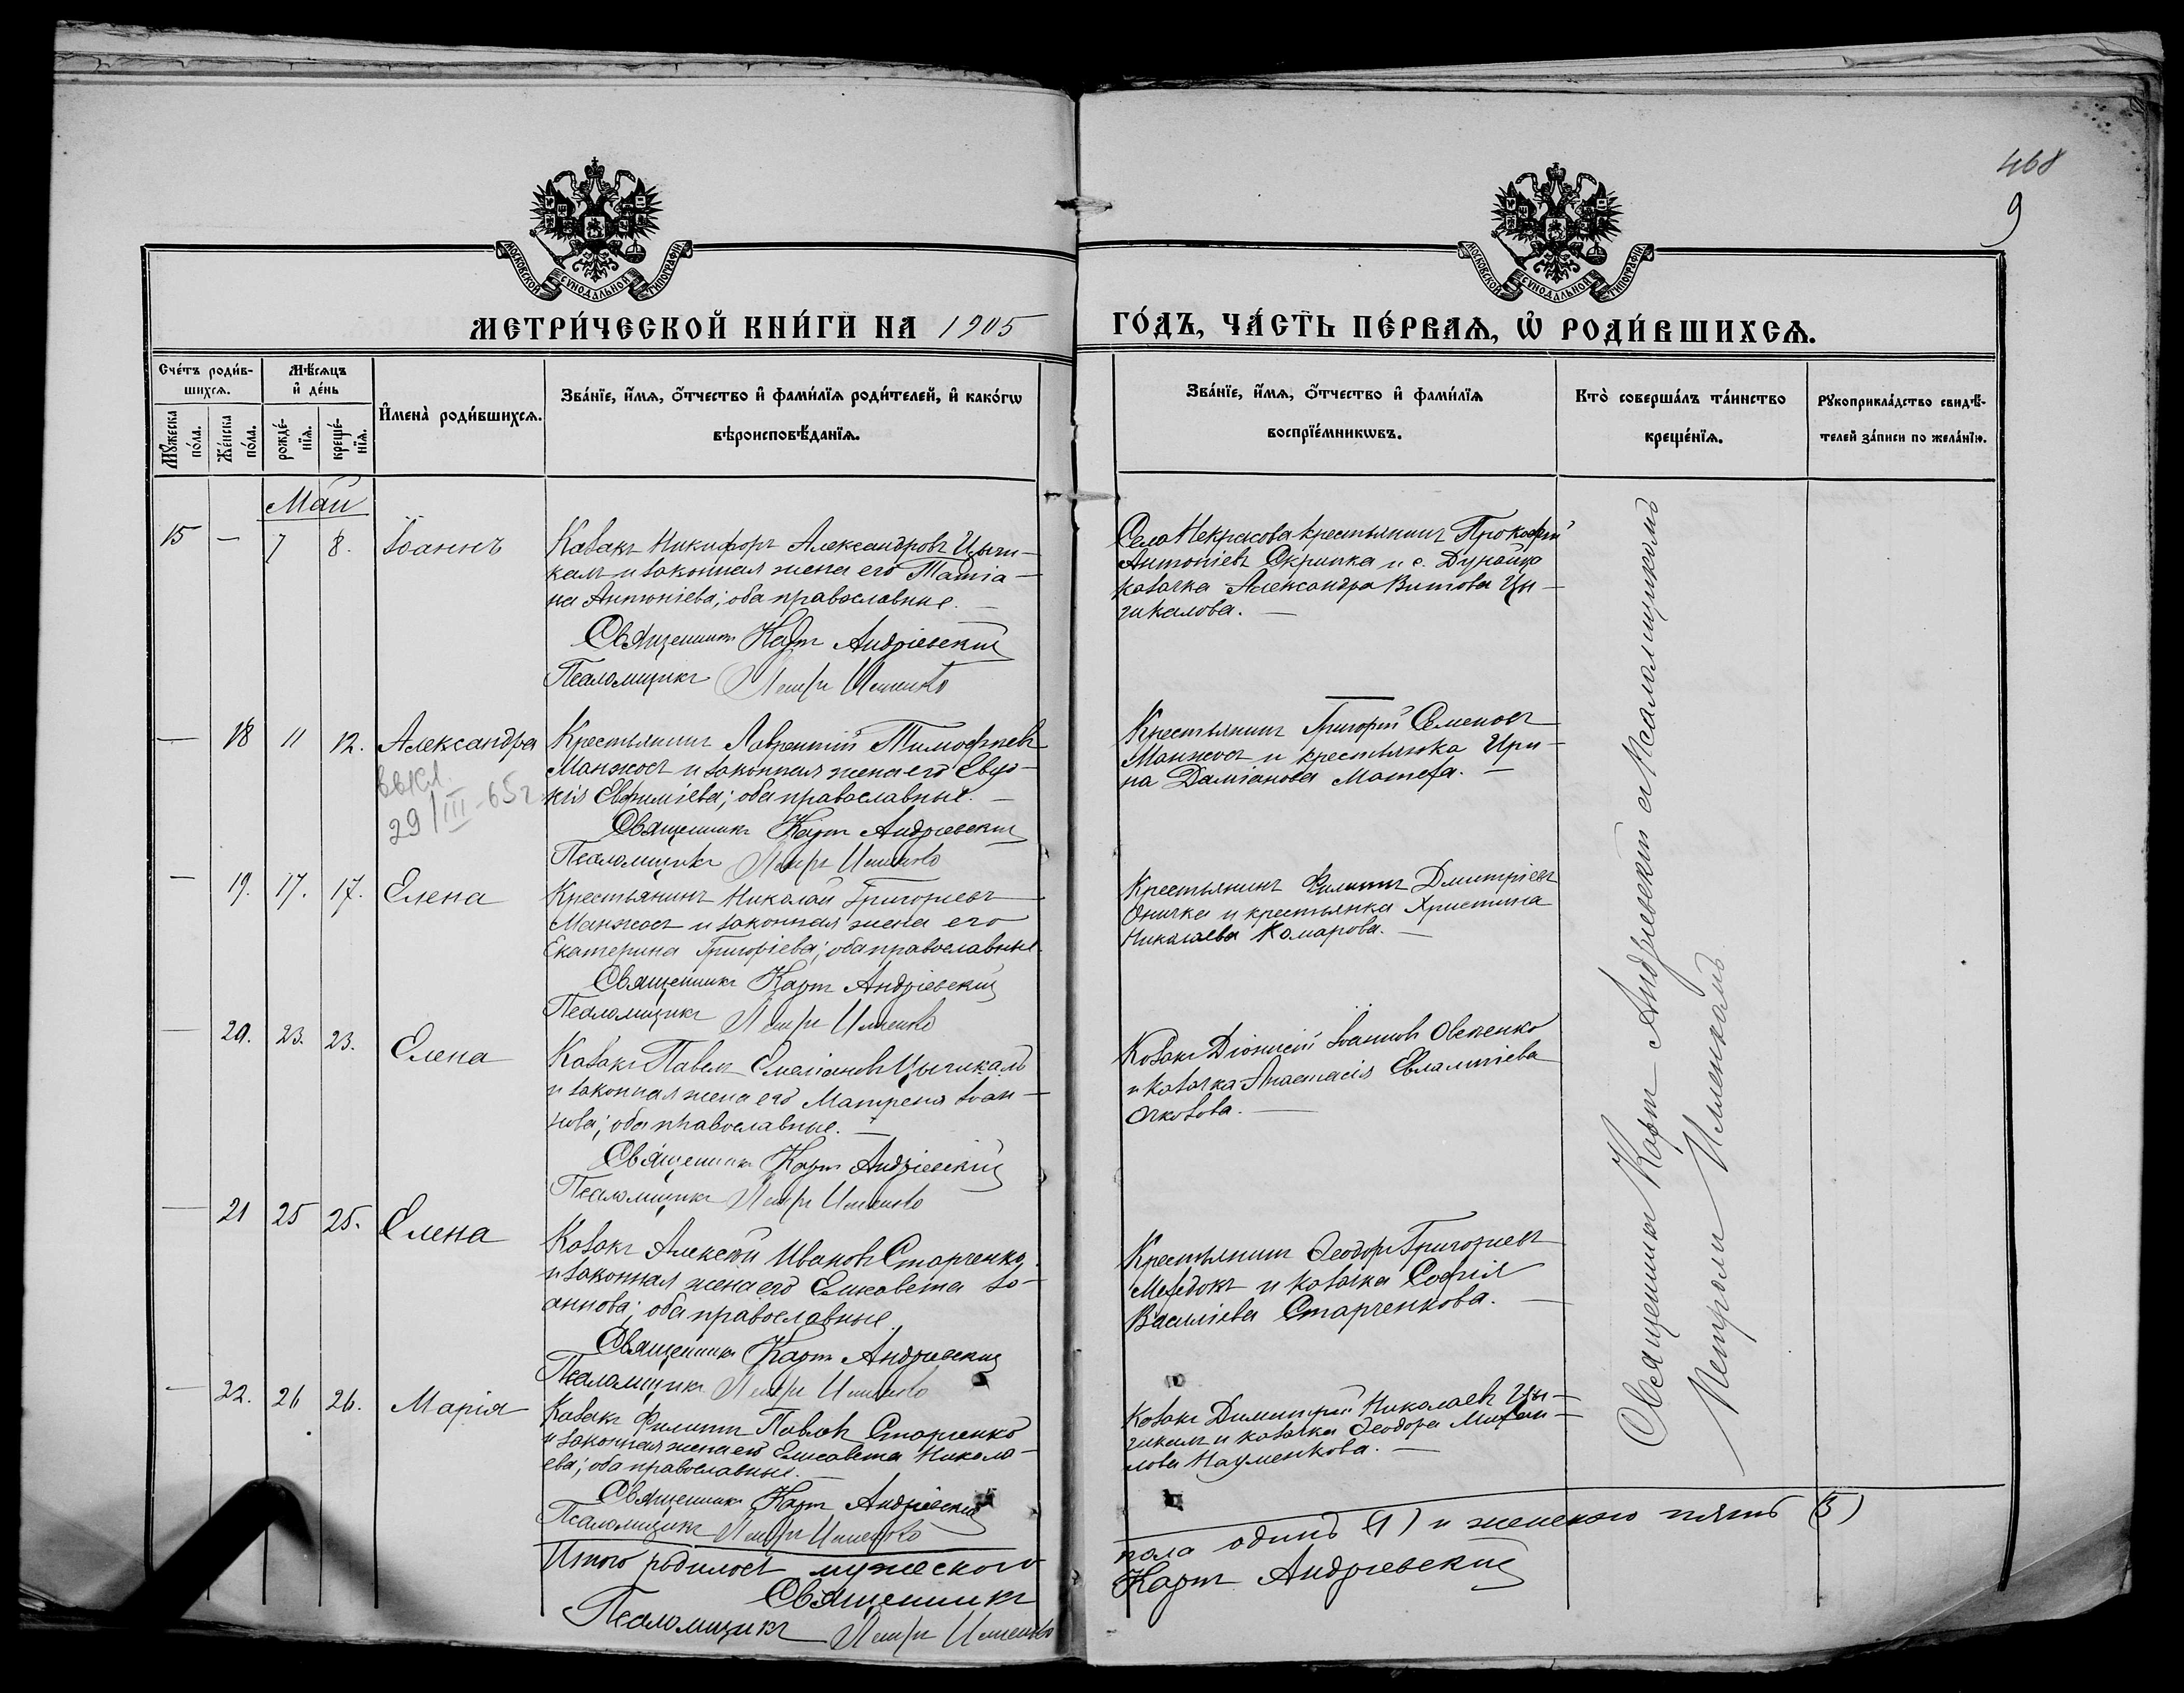 468
9
МОСКОВСКОЙ СУНОДАЛЬНОЙ ТИПОГРАФІИ
МОСКОВСКОЙ СУНОДАЛЬНОЙ ТИПОГРАФІИ
МЕТРИ́ЧЕСКОЙ КНИ́ГИ НА 1905
ГО́ДЪ, ЧА́СТЬ ПЕ́РВАЯ, Ѡ҆ РОДИ́ВШИХСЯ.
Сче́тъ роди́в-
шихся.
Мѣ́сяцъ
и҆ де́нь
Му́жеска по́ла.
Же́нска по́ла.
рожде́-
нїя.
креще́-
нїя.
И҆мена̀ роди́вшихся.
Зва́нїе, и҆́мя, ѻ҆́тчество и҆ фами́лїя роди́телей, и҆ како́гѡ
вѣроисповѣ́данїя.
Зва́нїе, и҆́мя, ѻ҆́тчество и҆ фами́лїя
воспрїе́мникѡвъ.
Кто̀ соверша́лъ та́инство
креще́нїя.
Рꙋкоприкла́дство свидѣ́-
телей за́писи по жела́нїю.
Май
15
—
7
8.
Іоаннъ
Козакъ Никифоръ Александровъ Цычи-
калъ и законная жена его Татіа-
на Антоніева; оба православные. —
Священникъ Карпъ Андріевскій
Псаломщикъ Петръ Ильенко
Села Некрасова крестьянинъ Прокофій
Антоніевъ Скрипка и с. Дунайца
козачка Александра Витова Цы-
чикалова. —
—
18
11
12.
Александра
выкл.
29/III-65 г
Крестьянинъ Лаврентій Тимофеевъ
Манжосъ и законная жена его Евдо-
кія Евфиміева; оба православные. —
Священникъ Карпъ Андріевскій
Псаломщикъ Петръ Ильенко
Крестьянинъ Григорій Семеновъ
Манжосъ и крестьянка Ири-
на Даміанова —
—
19.
17.
17.
Елена
Крестьянинъ Николай Григорьевъ
Манжосъ и законная жена его
Екатерина Григоріева; оба православные.
Священникъ Карпъ Андріевскій
Псаломщикъ Петръ Ильенко
Крестьянинъ Филиппъ Дмитріевъ
Оничка и крестьянка Христина
Николаева Комарова. —
—
20.
23.
23.
Елена
Козакъ Павелъ Емеліановъ Цычикалъ
и законная жена его Матрена Іоан-
нова; оба православные. —
Священникъ Карпъ Андріевскій
Псаломщикъ Петръ Ильенко
Козакъ Діонисій Іоанновъ Овсіенко
и козачка Анастасія Евлампіева
Очкозова. —
—
21
25
25.
Елена
Козакъ Алексѣй Ивановъ Старченко
и законная жена его Елисавета Іо-
аннова; оба православные.
Священникъ Карпъ Андріевскій
Псаломщикъ Петръ Ильенко
Крестьянинъ Ѳеодоръ Григорьевъ
и козачка Софія
Василіева Старченкова. —
—
22.
26
26.
Марія
Козакъ Филиппъ Павловъ Старченко
и законная жена его Елисавета Никола-
ева; оба православные. —
Священникъ Карпъ Андріевскій
Псаломщикъ Петръ Ильенко
Козакъ Димитрій Николаевъ Цы-
чикалъ и козачка Ѳеодора Михаи-
лова Науменкова. —
Священникъ Карпъ Андріевскій съ Псаломщикомъ
Петромъ Ильенкомъ
Итого родилось мужескаго
пола одинъ (1) и женскаго пять (5)
Священникъ
Карпъ Андріевскій
Псаломщикъ Петръ Ильенко